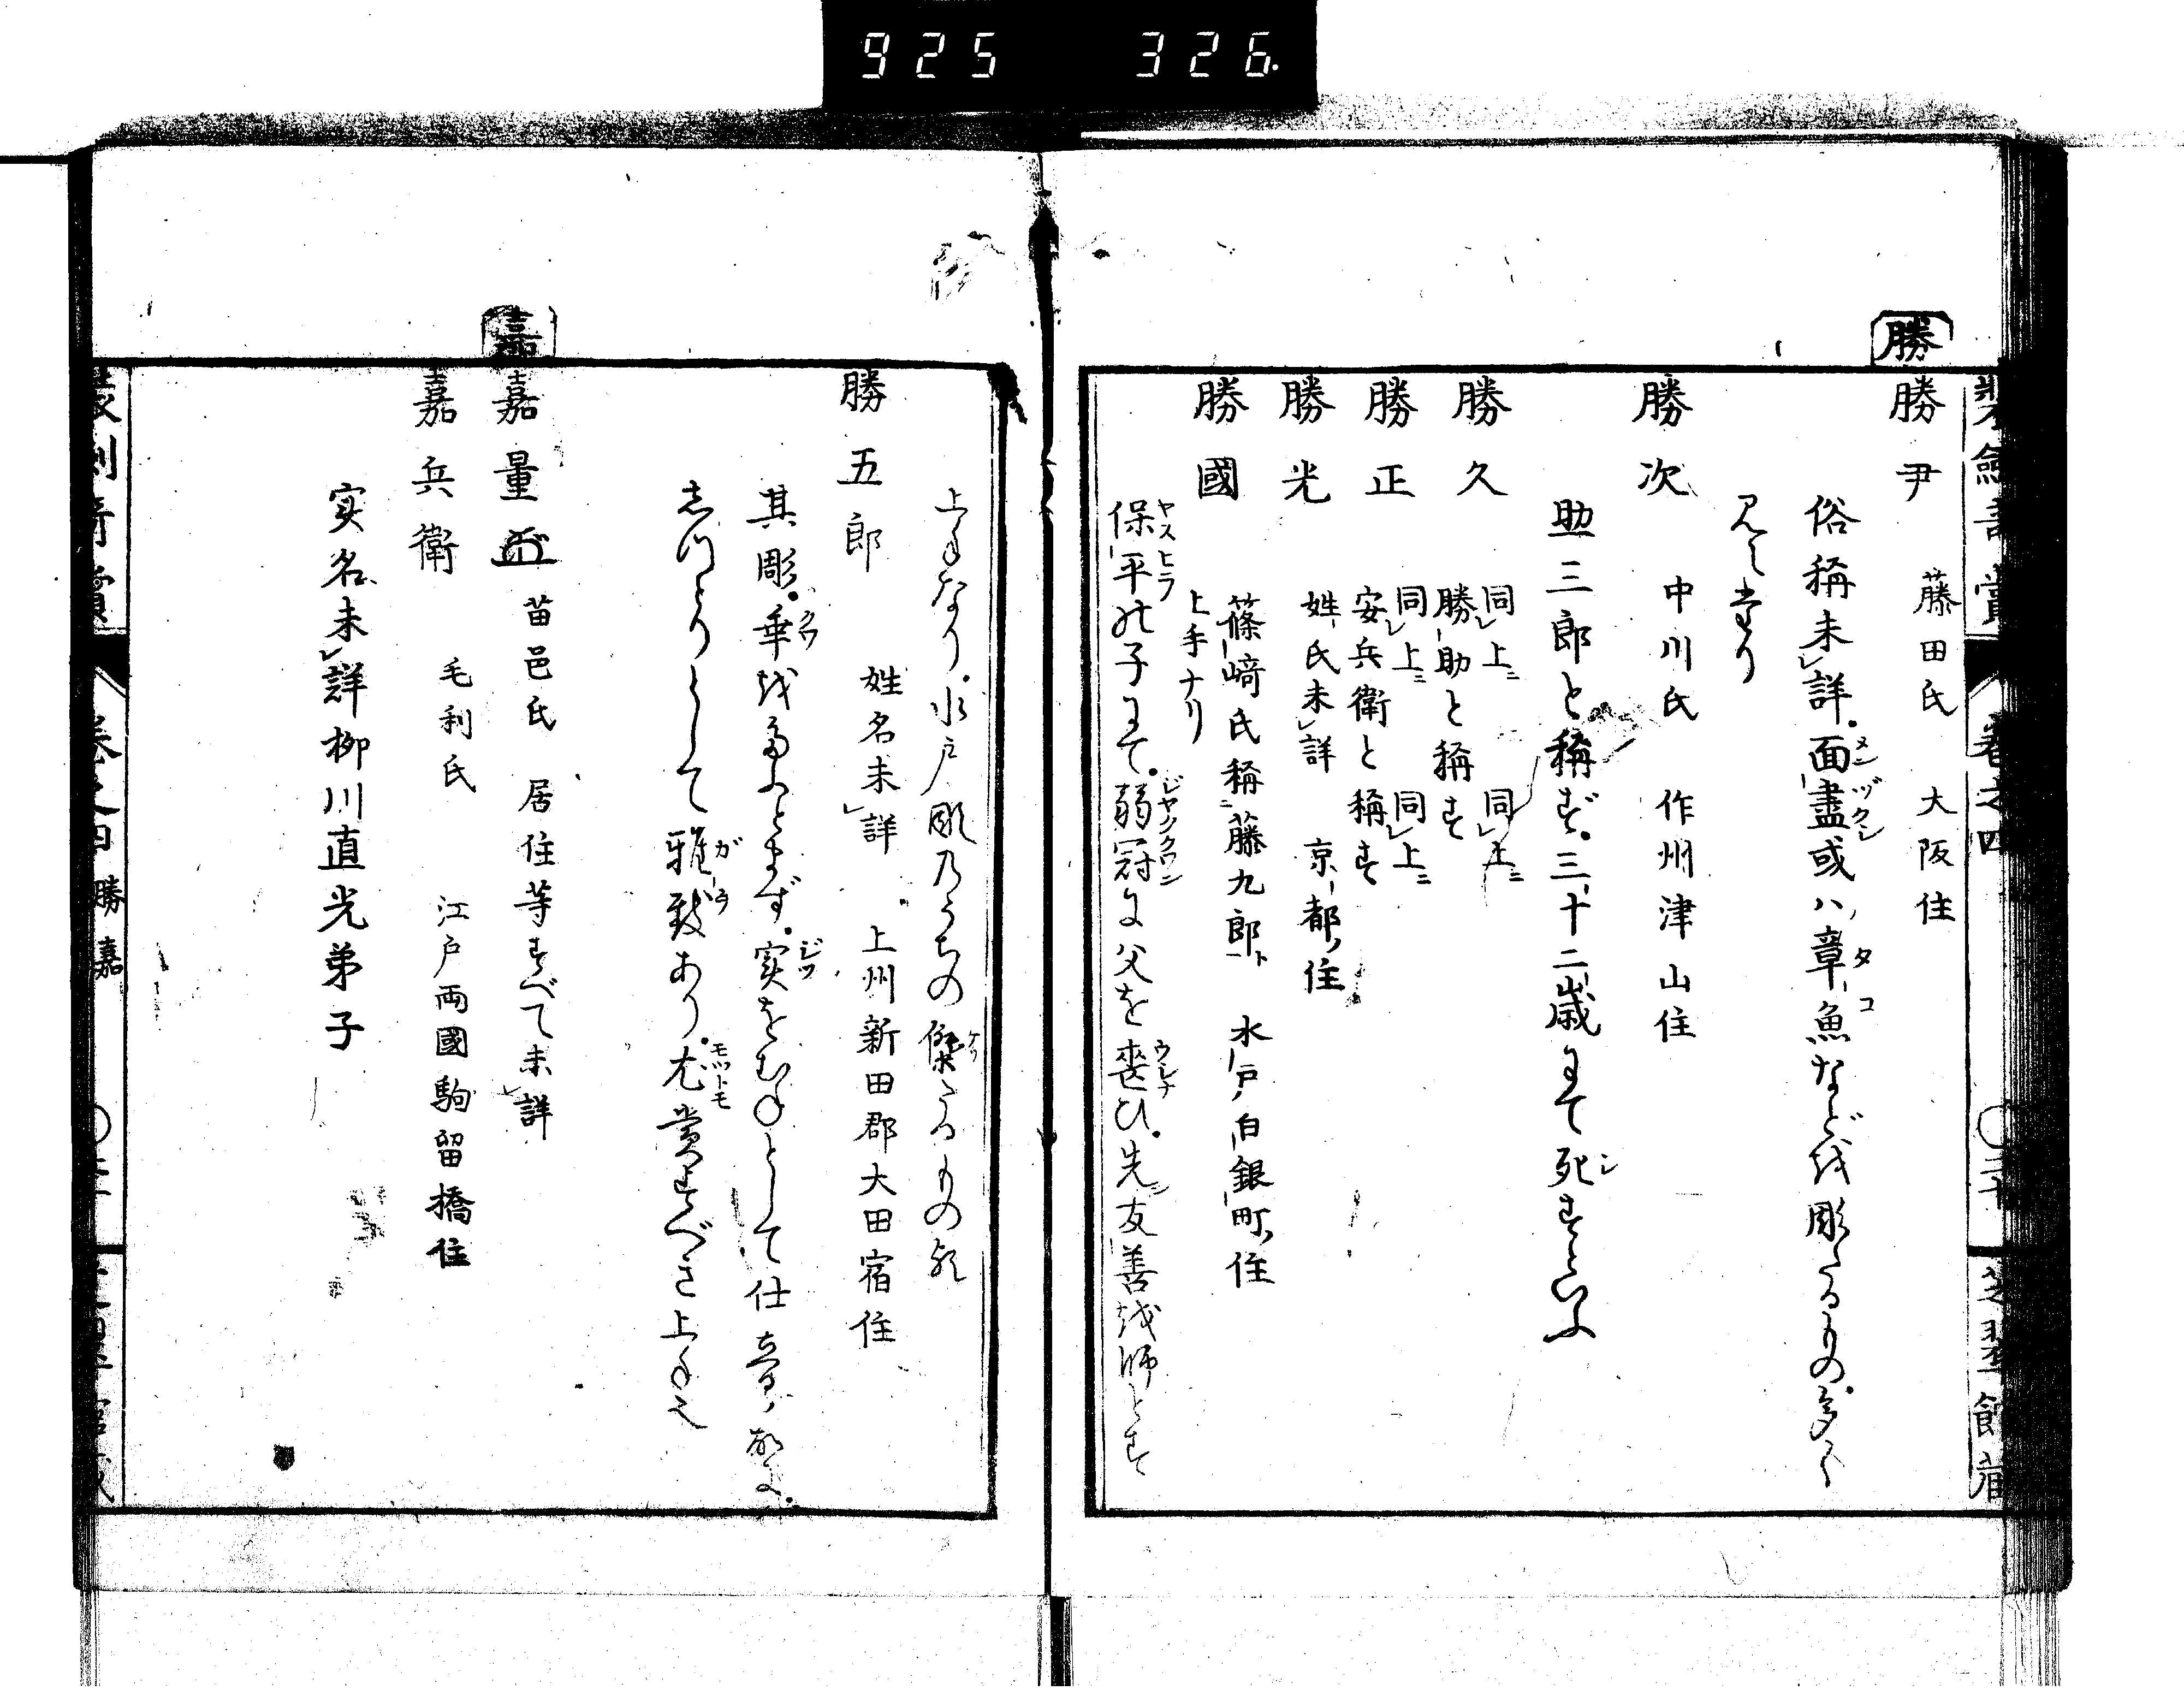 925 326.
勝
勝尹 藤田氏 大阪住
俗稱未レ詳。面盡或ハ章魚など越彫たるもの。多く
見へ堂り
勝次 中川氏 作州津山住
助三郎と稱ず。三十二歳尓て死すといふ
勝久 同レ上ニ 同レ上ニ
勝助と稱す
勝正 同レ上ニ 同レ上ニ
安兵衛と稱す
勝光 姓氏未レ詳 京都ノ住
勝國 篠﨑氏稱ニ藤九郎ト 水戸ノ白銀町ノ住
上手ナリ
保平能子尓て。弱冠尓父を喪ひ。先友善越師とす
上手なり。水戸彫乃うちの傑たるもの歟
勝五郎 姓名未レ詳 上州新田郡大田宿住
其彫。
実をむねとして仕
志川とりとして雅致あり。尤賞すべき上手也
嘉
嘉量 苗邑氏 居住等すべて未レ詳
嘉兵衛 毛利氏 江戸両國駒留橋住
実名未レ詳柳川直光弟子
卷之四 勝 嘉